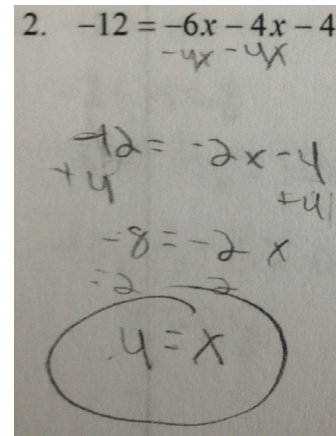 2. −12 = −6x − 4x − 4
-4x -4x
-12 = -2x - 4
+4 +4
-8 = -2x
-2 -2
4 = x